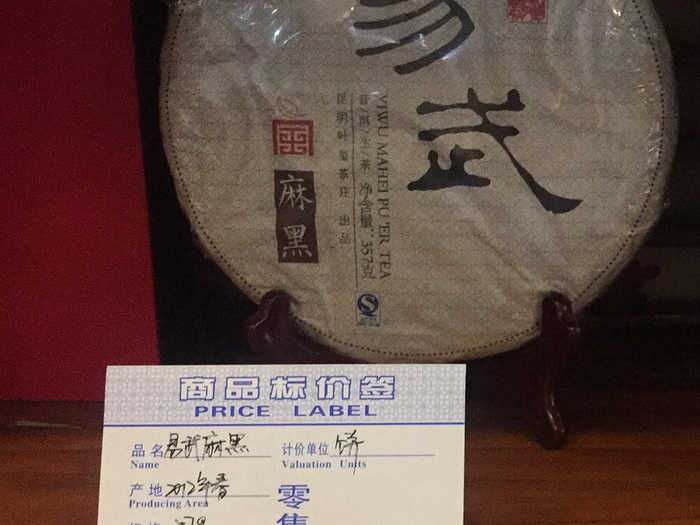 易武
YIWU MAHEI PU'ER TEA
普洱生茶 净含量:357克
昆明叶皇茶庄 出品
麻黑
商品标价签
PRICE LABEL
品名 易武麻黑
Name
计价单位 饼
Valuation Units
产地 2012年春
Producing Area
零售